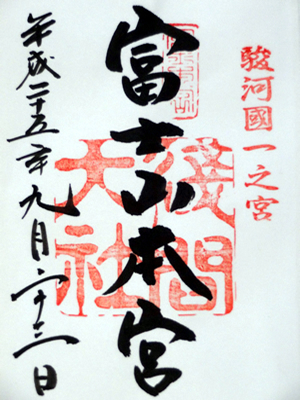 駿河國一之宮
富士山本宮
淺間大社
平成二十五年九月二十三日